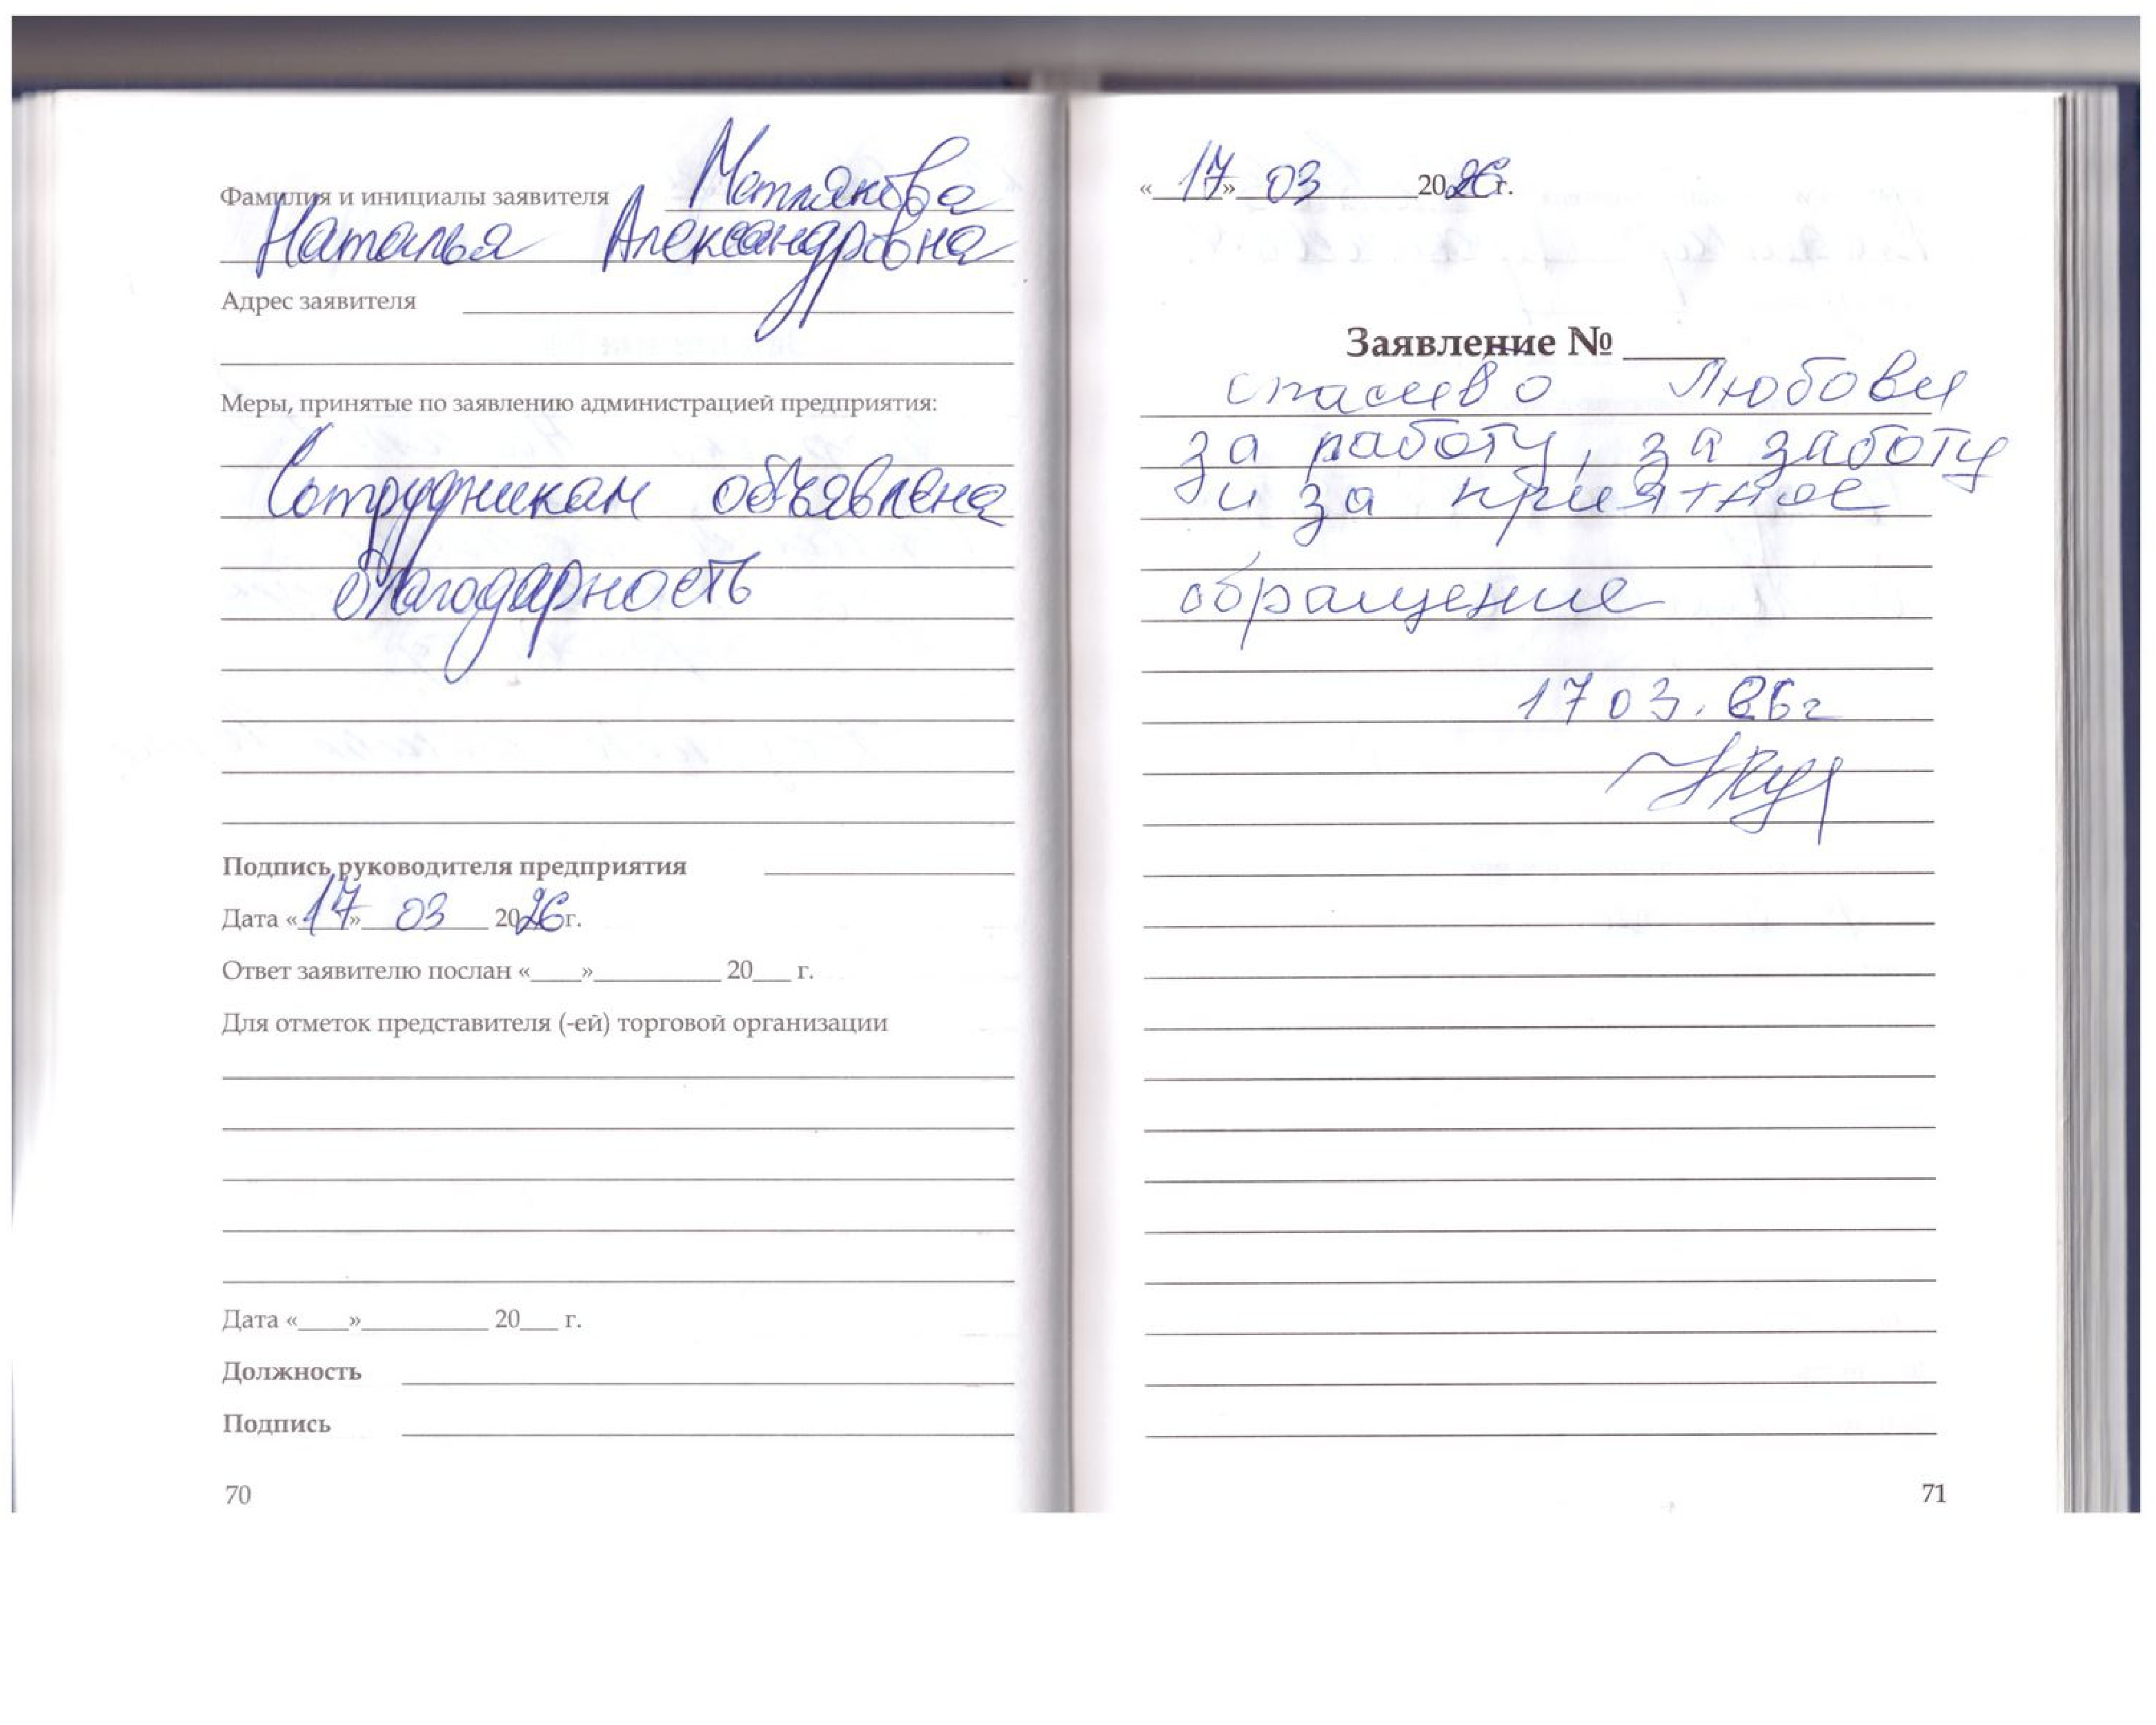 Фамилия и инициалы заявителя Матлякова
Наталья Александровна
Адрес заявителя
Меры, принятые по заявлению администрацией предприятия:
Сотрудникам объявлена
благодарность
Подпись руководителя предприятия
Дата «17» 03 2026 г.
Ответ заявителю послан «____»__________ 20___ г.
Для отметок представителя (-ей) торговой организации
Дата «____»__________ 20___ г.
Должность
Подпись
70
«17» 03 2026 г.
Заявление № ____
спасиво Любови
за работу, за заботу
и за приятное
обращение
17 03. 26г
71